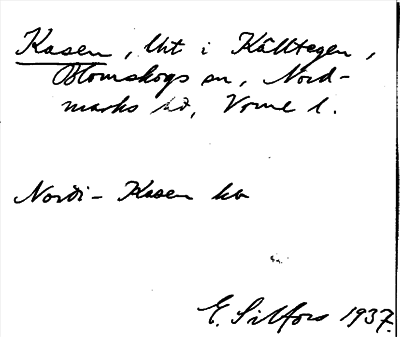 Kasen, Utt i Källtegen,
Blomskogs sn, Nord-
marks hd, Vrml l.
Nordi - Kasen ha
E. Silfors 1937.